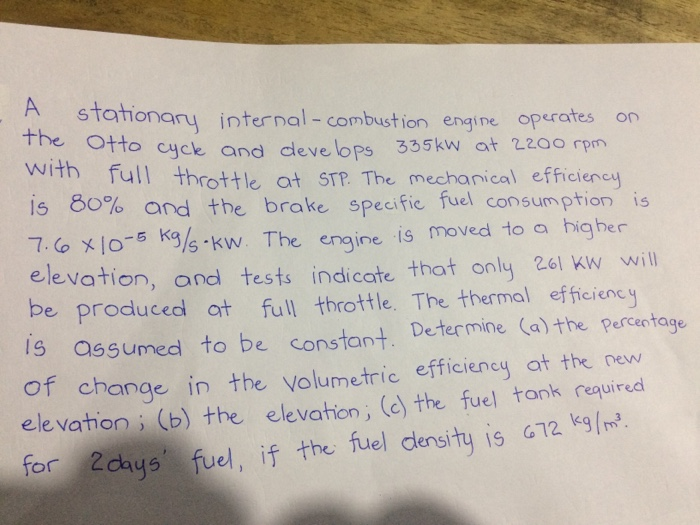 A stationary internal-combustion engine operates on
the Otto cycle and develops 335kW at 2200 rpm
with full throttle at STP. The mechanical efficiency
is 80% and the brake specific fuel consumption is
7.6 x10-5 kg/s·kW. The engine is moved to a higher
elevation, and tests indicate that only 261 kW will
be produced at full throttle. The thermal efficiency
is assumed to be constant. Determine (a) the percentage
of change in the volumetric efficiency at the new
elevation; (b) the elevation; (c) the fuel tank required
for 2days' fuel, if the fuel density is 672 kg/m³.